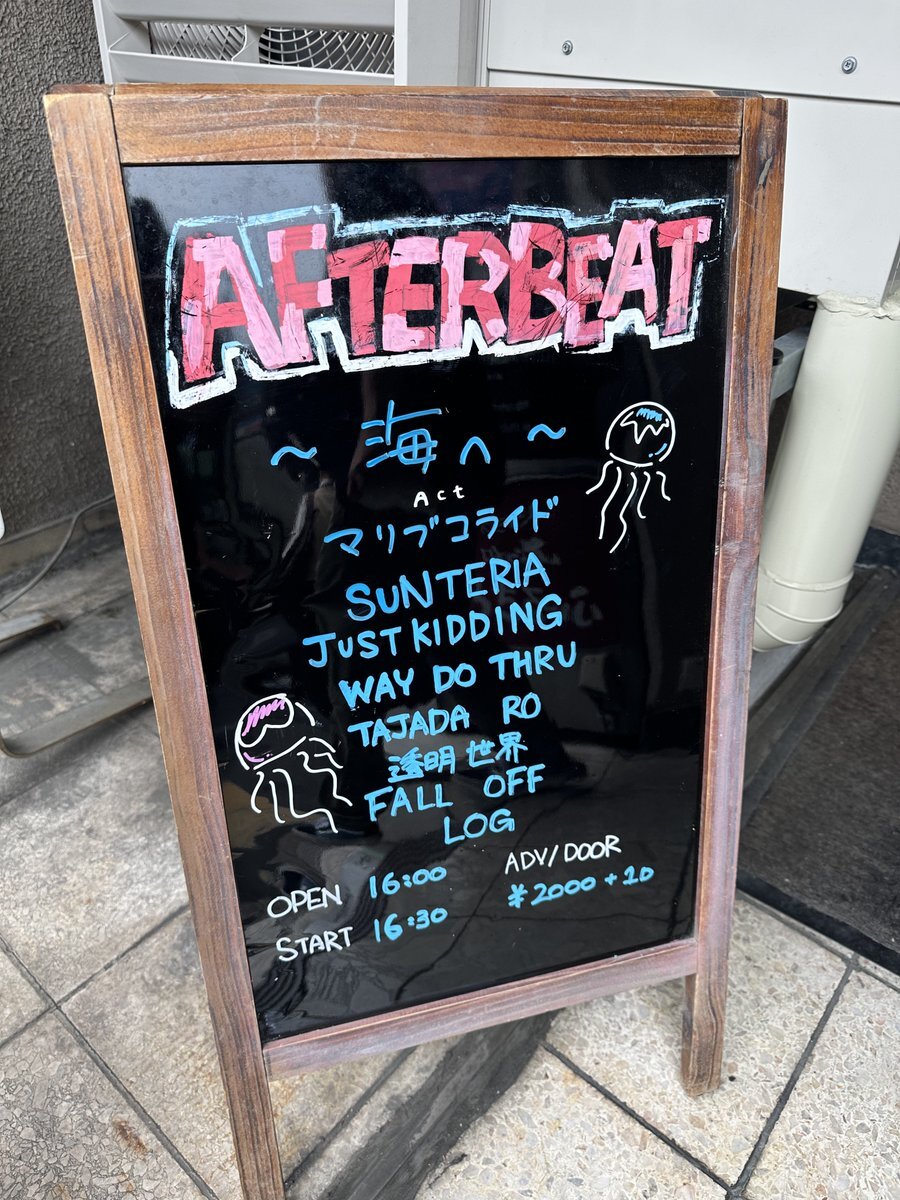 AFTERBEAT
～ 海へ ～
Act
マリブコライド
SUNTERIA
JUST KIDDING
WAY DO THRU
TAJADA RO
透明世界
FALL OFF
LOG
OPEN 16:00
START 16:30
ADV/DOOR
¥2000+1D